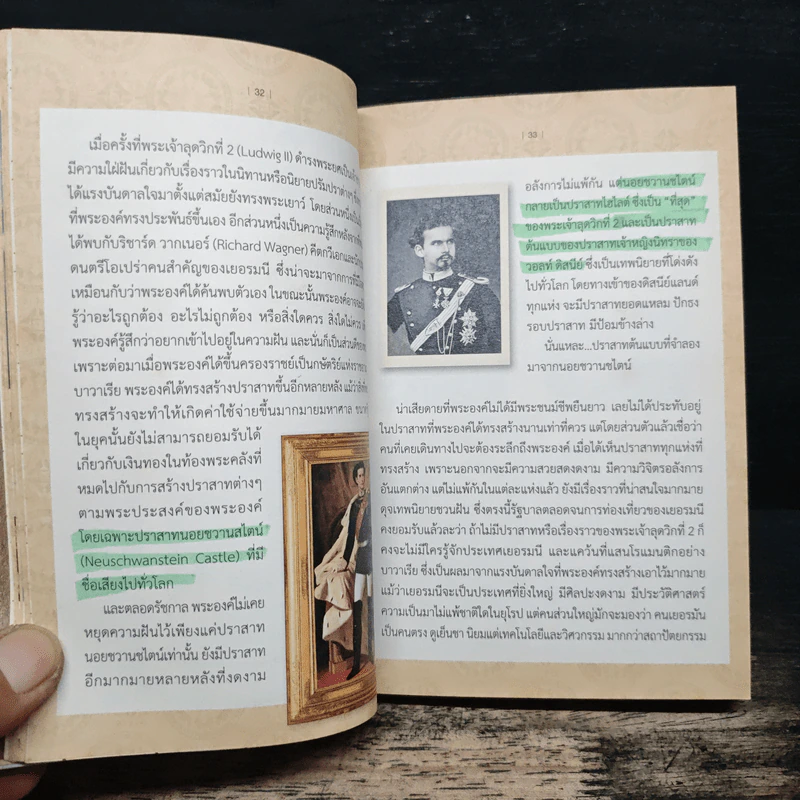 | 32 |
เมื่อครั้งที่พระเจ้าลุดวิกที่ 2 (Ludwig II) ดำรงพระยศเป็น
มีความใฝ่ฝันเกี่ยวกับเรื่องราวในนิทานหรือนิยายปรัมปราต่างๆ
ได้แรงบันดาลใจมาตั้งแต่สมัยยังทรงพระเยาว์ โดยส่วนหนึ่ง
ที่พระองค์ทรงประพันธ์ขึ้นเอง อีกส่วนหนึ่งเป็นความรู้สึกหลังจาก
ได้พบกับริชาร์ด วากเนอร์ (Richard Wagner) คีตกวีเอก
ดนตรีโอเปร่าคนสำคัญของเยอรมนี ซึ่งน่าจะมาจากการที่
เหมือนกับว่าพระองค์ได้ค้นพบตัวเอง ในขณะนั้นพระองค์อาจจะ
รู้ว่าอะไรถูกต้อง อะไรไม่ถูกต้อง หรือสิ่งใดควร สิ่งใดไม่ควร
พระองค์รู้สึกว่าอยากเข้าไปอยู่ในความฝัน และนั่นก็เป็นส่วน
เพราะต่อมาเมื่อพระองค์ได้ขึ้นครองราชย์เป็นกษัตริย์แห่ง
บาวาเรีย พระองค์ได้ทรงสร้างปราสาทขึ้นอีกหลายหลัง แม้ว่า
ทรงสร้างจะทำให้เกิดค่าใช้จ่ายขึ้นมากมายมหาศาล
ในยุคนั้นยังไม่สามารถยอมรับได้
เกี่ยวกับเงินทองในท้องพระคลังที่
หมดไปกับการสร้างปราสาทต่างๆ
ตามพระประสงค์ของพระองค์
โดยเฉพาะปราสาทนอยชวานสไตน์
(Neuschwanstein Castle) ที่มี
ชื่อเสียงไปทั่วโลก
และตลอดรัชกาล พระองค์ไม่เคย
หยุดความฝันไว้เพียงแค่ปราสาท
นอยชวานชไตน์เท่านั้น ยังมีปราสาท
อีกมากมายหลายหลังที่งดงาม
| 33 |
อลังการไม่แพ้กัน แต่นอยชวานชไตน์
กลายเป็นปราสาทไฮไลต์ ซึ่งเป็น “ที่สุด”
ของพระเจ้าลุดวิกที่ 2 และเป็นปราสาท
ต้นแบบของปราสาทเจ้าหญิงนิทราของ
วอลท์ ดิสนีย์ ซึ่งเป็นเทพนิยายที่โด่งดัง
ไปทั่วโลก โดยทางเข้าของดิสนีย์แลนด์
ทุกแห่ง จะมีปราสาทยอดแหลม ปักธง
รอบปราสาท มีป้อมข้างล่าง
นั่นแหละ...ปราสาทต้นแบบที่จำลอง
มาจากนอยชวานชไตน์
น่าเสียดายที่พระองค์ไม่ได้มีพระชนม์ชีพยืนยาว เลยไม่ได้ประทับอยู่
ในปราสาทที่พระองค์ได้ทรงสร้างนานเท่าที่ควร แต่โดยส่วนตัวแล้วเชื่อว่า
คนที่เคยเดินทางไปจะต้องระลึกถึงพระองค์ เมื่อได้เห็นปราสาททุกแห่งที่
ทรงสร้าง เพราะนอกจากจะมีความสวยสดงดงาม มีความวิจิตรอลังการ
อันแตกต่าง แต่ไม่แพ้กันในแต่ละแห่งแล้ว ยังมีเรื่องราวที่น่าสนใจมากมาย
ดุจเทพนิยายชวนฝัน ซึ่งตรงนี้รัฐบาลตลอดจนการท่องเที่ยวของเยอรมนี
คงยอมรับแล้วละว่า ถ้าไม่มีปราสาทหรือเรื่องราวของพระเจ้าลุดวิกที่ 2 ก็
คงจะไม่มีใครรู้จักประเทศเยอรมนี และแคว้นที่แสนโรแมนติกอย่าง
บาวาเรีย ซึ่งเป็นผลมาจากแรงบันดาลใจที่พระองค์ทรงสร้างเอาไว้มากมาย
แม้ว่าเยอรมนีจะเป็นประเทศที่ยิ่งใหญ่ มีศิลปะงดงาม มีประวัติศาสตร์
ความเป็นมาไม่แพ้ชาติใดในยุโรป แต่คนส่วนใหญ่มักจะมองว่า คนเยอรมัน
เป็นคนตรง ดูเย็นชา นิยมแต่เทคโนโลยีและวิศวกรรม มากกว่าสถาปัตยกรรม